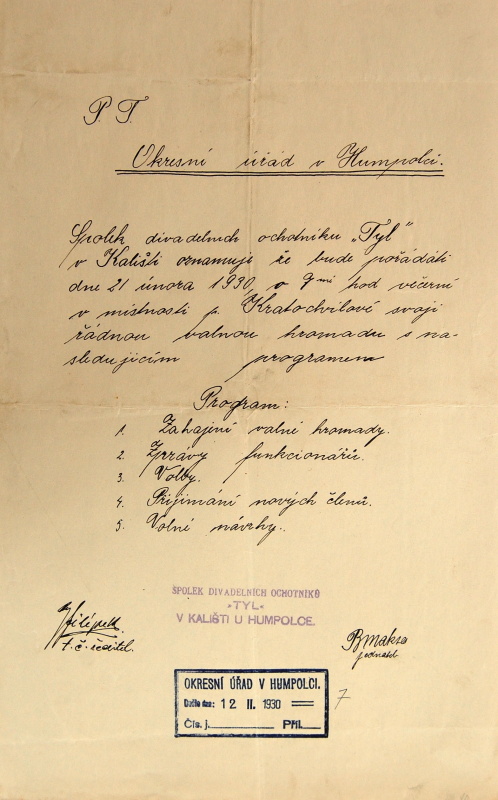 P. T.
Okresní úřád v Humpolci.
Spolek divadelních ochotníku „Tyl"
v Kališti oznamuje že bude pořádáti
dne 21 února 1930 o 7mi hod večerní
v místnosti p. Kratochvilové svoji
řádnou valnou hromadu s na-
sledujicím programem
Program:
1. Zahajení valné hromady.
2. Zprávy funkcionářů.
3. Volby.
4. Přijimání nových členů.
5. Volné návrhy.
SPOLEK DIVADELNÍCH OCHOTNÍKŮ
»TYL«
V KALIŠTI U HUMPOLCE.
t. č. ředitel.
jednatel
OKRESNÍ ÚŘAD V HUMPOLCI.
Došlo dne: 12 II. 1930
Čís. j. Příl.
7